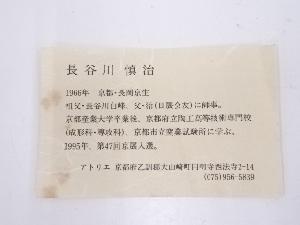 長谷川 慎治
1966年 京都・長岡京生
祖父・長谷川白峰、父・治(日展会友)に師事。
京都産業大学卒業後、京都府立陶工高等技術専門校
(成形科・専攻科)、京都市立窯業試験所に学ぶ。
1995年、第47回京展入選。
アトリエ 京都府乙訓郡大山崎町円明寺西法寺2-14
(075)956-5839